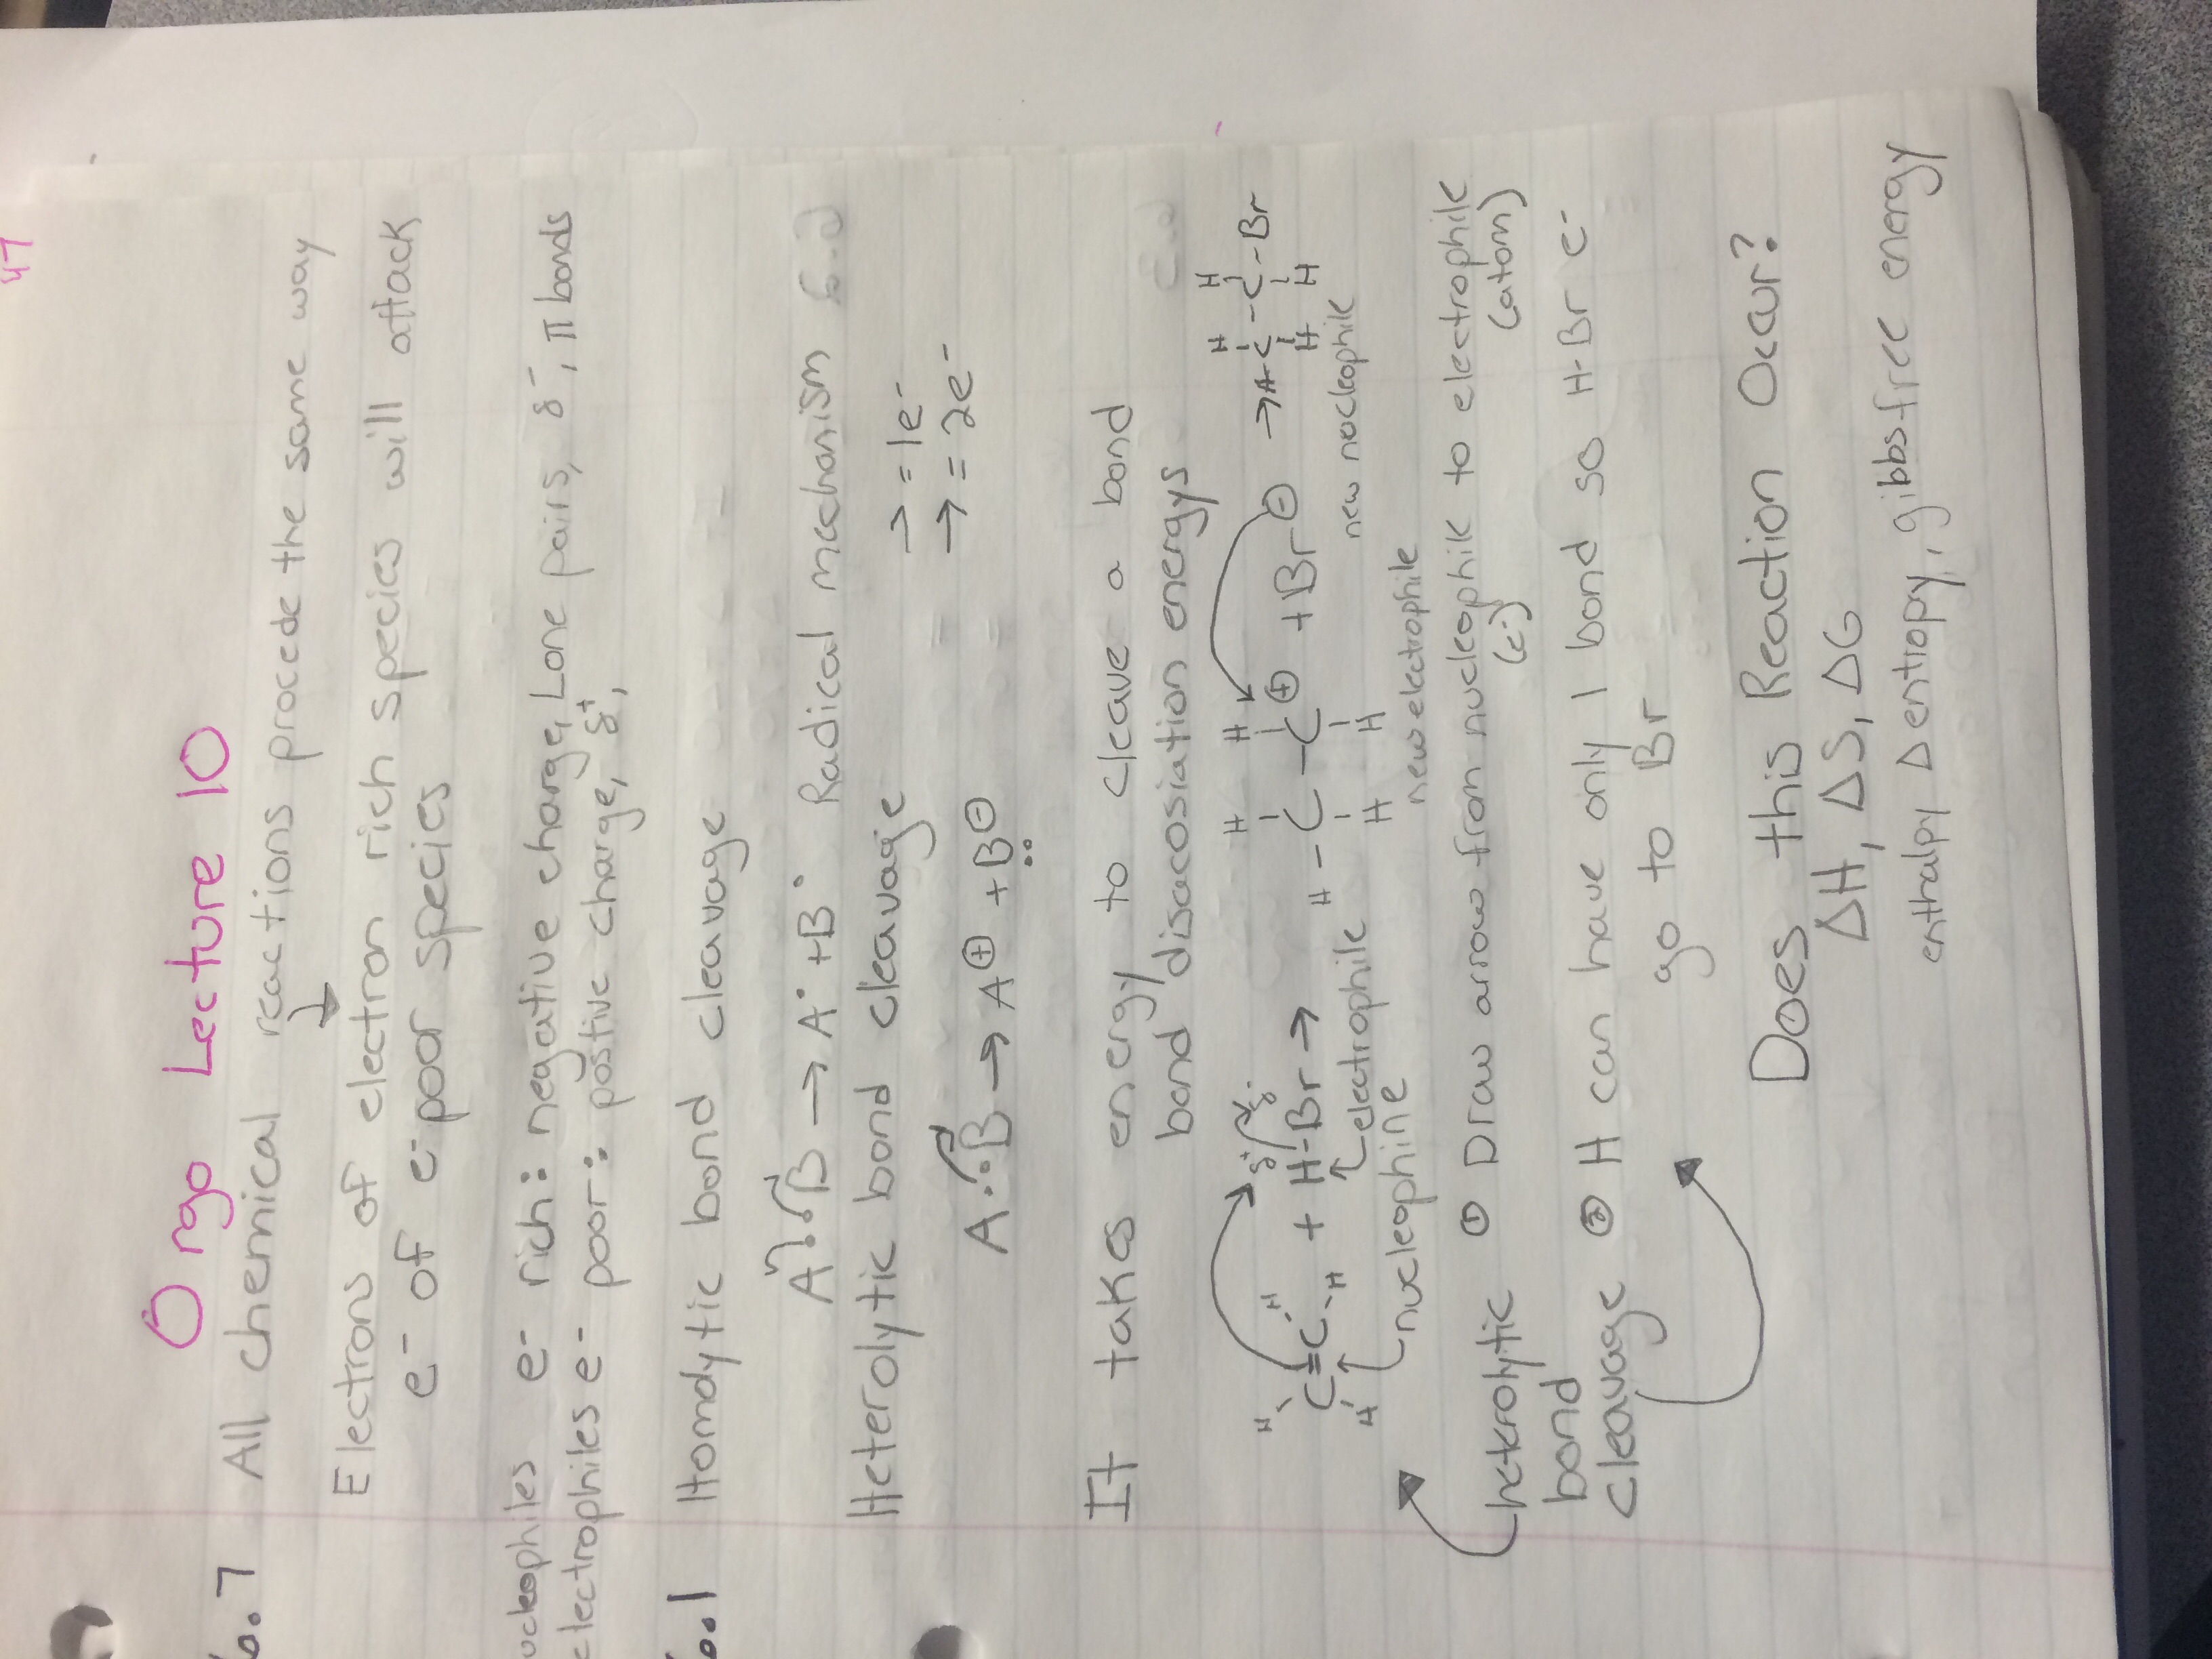 47
Orgo Lecture 10
6.7 All chemical reactions procede the same way
↓
Electrons of electron rich species will attack
e⁻ of e⁻ poor species
ucleophiles e⁻ rich: negative charge, Lone pairs, δ⁻, π bonds
electrophiles e⁻ poor: postive charge, δ⁺,
6.1 Homolytic bond cleavage
A:B → A· + B· Radical mechanism
Heterolytic bond cleavage ⇀ = 1e⁻
A:B → A⊕ + B⊖ → = 2e⁻
It takes energy to cleave a bond
bond disacosiation energys
H H δ+ δ- H H H H
C=C + H-Br → H-C-C⊕ + Br⊖ → H-C-C-Br
H H H H H H
electrophile new nucleophile
nucleophine new electrophile
heterolytic ① Draw arrow from nucleophile to electrophile
bond (e⁻) (atom)
cleavage ② H can have only 1 bond so H-Br e⁻
go to Br
Does this Reaction Occur?
ΔH, ΔS, ΔG
enthalpy Δ entropy, gibbs free energy